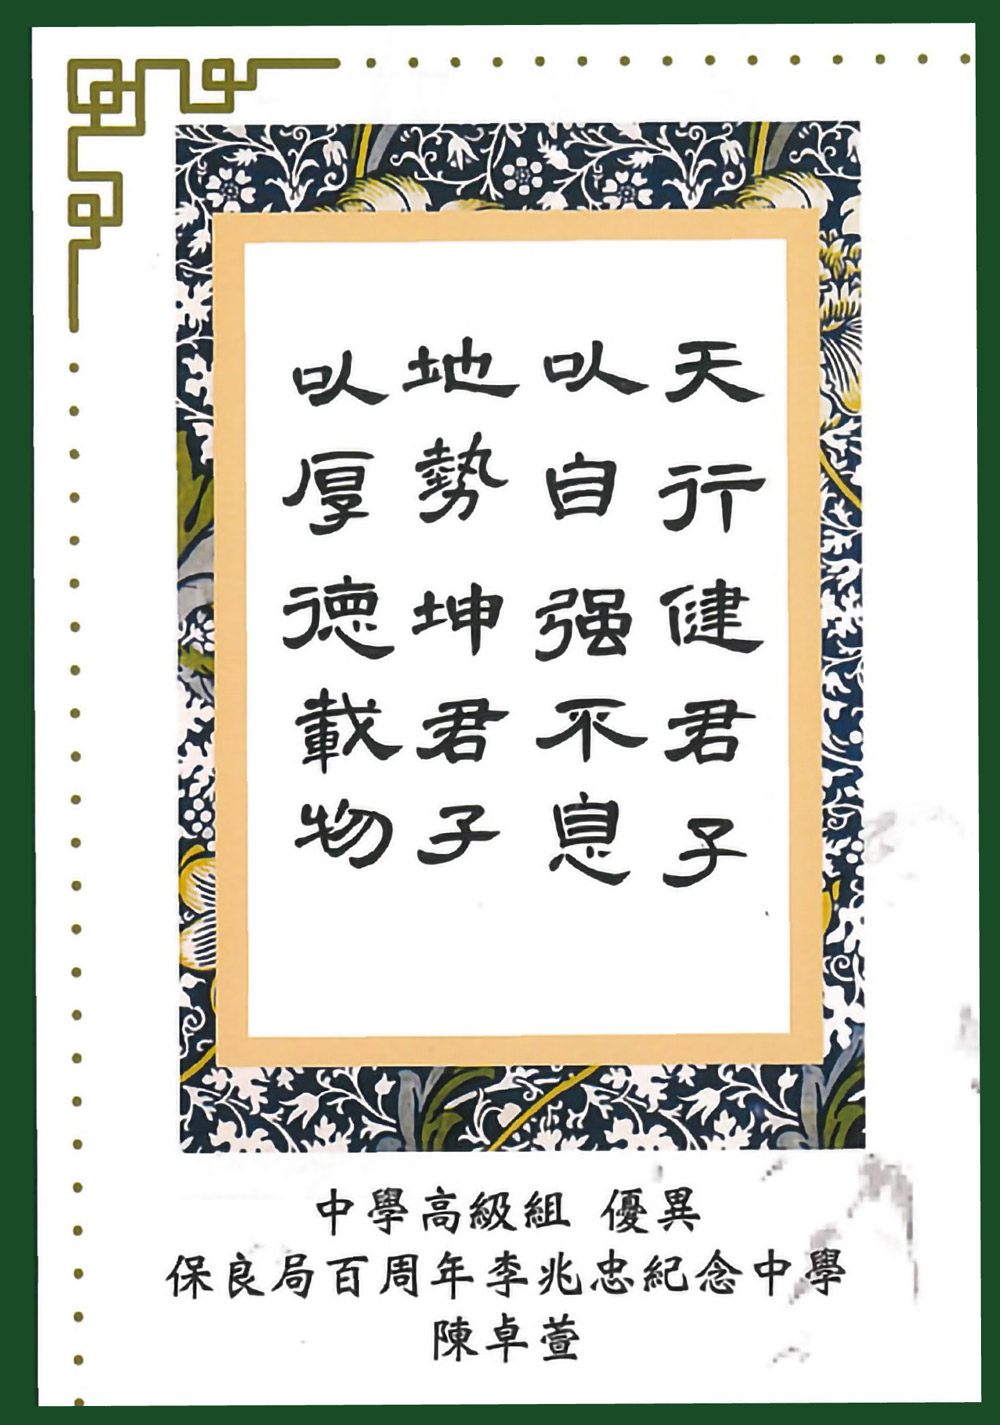 天行健君子
以自强不息
地勢坤君子
以厚德載物
中學高級組 優異
保良局百周年李兆忠紀念中學
陳卓萱